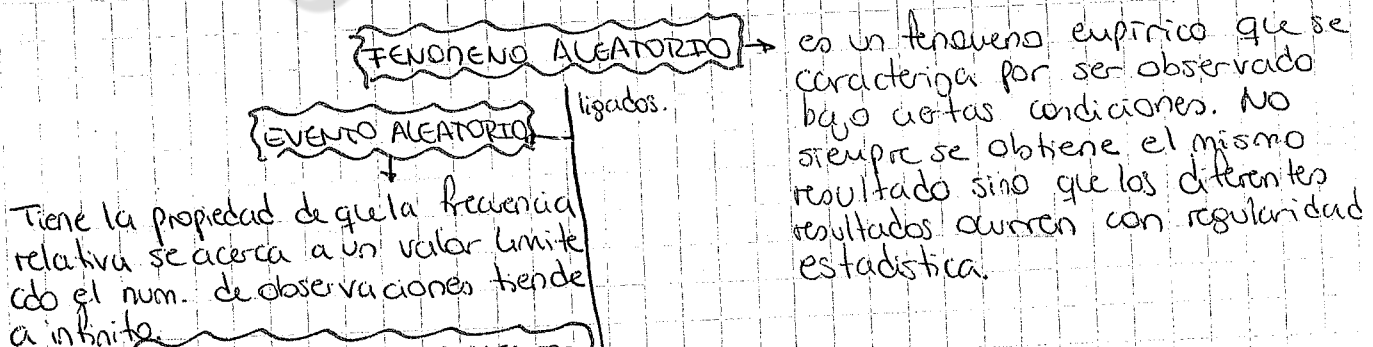 FENOMENO ALEATORIO
es un fenomeno empirico que se
caracteriza por ser observado
bajo ciertas condiciones. No
siempre se obtiene el mismo
resultado sino que los diferentes
resultados ocurren con regularidad
estadistica.
ligados.
EVENTO ALEATORIO
Tiene la propiedad de que la frecuencia
relativa se acerca a un valor limite
cdo el num. de observaciones tiende
a infinito.